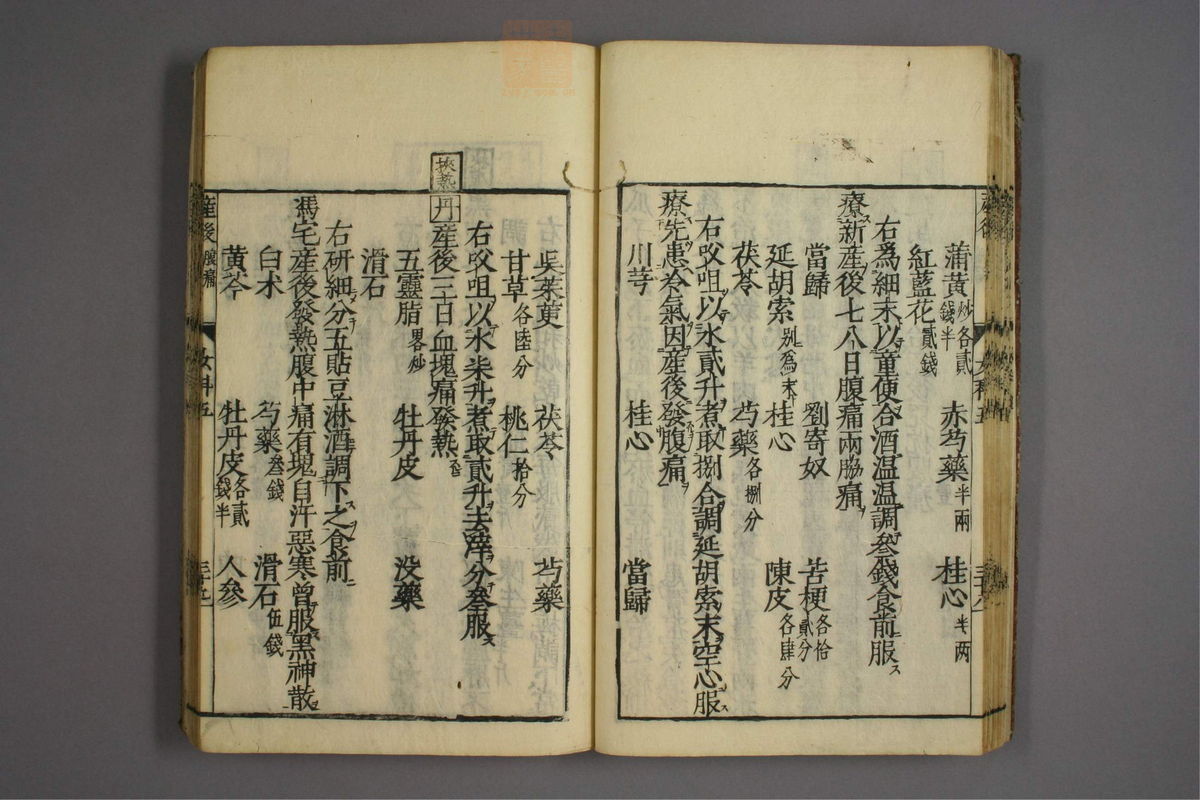 蒲黄炒各貳錢半　赤芍藥半兩　桂心半两
紅藍花貳錢
右爲細末以童便合酒温温調叁錢食前服ス
療新産後七八日腹痛兩脇痛
當歸　劉寄奴　苦梗各拾貳分
延胡索別爲末　桂心　陳皮各肆分
茯苓　芍藥各捌分
右㕮咀以水貳升煮取捌合調延胡索末空心服ス
療先患冷氣因産後發腹痛
川芎　桂心　當歸
産後腹痛　女科五
吳茱萸　茯苓　芍藥
甘草各陸分　桃仁拾分
右㕮咀以水柒升煮取貳升去滓分叁服ス
挾熱
丹産後三日血塊痛發熱
五靈脂畧炒　牡丹皮　没藥
滑石
右研細分五貼豆淋酒調下之食前
馮宅産後發熱腹中痛有塊自汗惡寒曾服黑神散
白术　芍藥叁錢　滑石伍錢
黄芩　牡丹皮各貳錢半　人參
産後腹痛　女科五